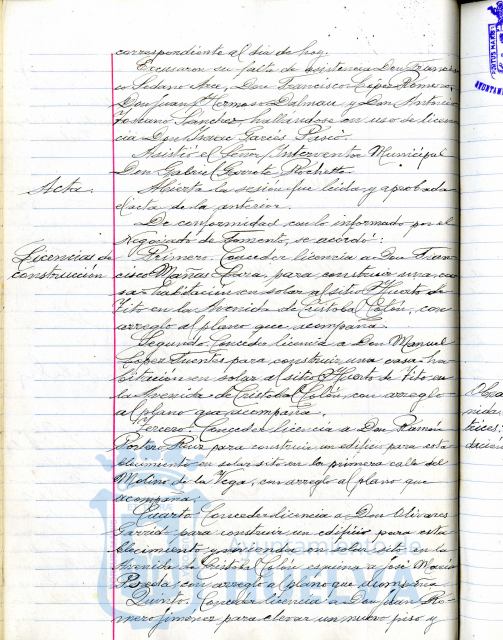 correspondiente al día de hoy.
Excusaron su falta de asistencia Don Francis-
co Sedano Arce, Don Francisco López Romero,
Don Juan Hermoso Dalmau y Don Antonio
Toscano Sánchez, hallándose en uso de licen-
cia Don Isaac García
Asistió el Señor Interventor Municipal
Don Gabriel Garrote Rochetto.
Acta.
Abierta la sesión fue leída y aprobada
acta de la anterior.
De conformidad con lo informado por el
Negociado de Fomento, se acordó:
Licencias de
construcción
Primero. Conceder licencia a Don Fran-
cisco Mañas para construir una ca-
sa-habitación en solar al sitio Huerto de
Tito en la Avenida de Cristobal Colón, con
arreglo al plano que acompaña.
Segundo. Conceder licencia a Don Manuel
López Fuentes para construir una casa-ha-
bitación en solar al sitio Huerto de Tito, en
la Avenida de Cristobal Colón, con arreglo
al plano que acompaña.
Tercero. Conceder licencia a Don Ramón
Portero Ruiz para construir un edificio para esta-
blecimiento en solar sito en la primera calle del
Molino de la Vega, con arreglo al plano que
acompaña.
Cuarto. Conceder licencia a Don Olivares
Garrido para construir un edificio para esta-
blecimiento y vivienda en solar sito en la
Avenida de Cristobal Colón esquina a José María
Pereda, con arreglo al plano que acompaña
Quinto. Conceder licencia a Don Juan Ro-
mero Jiménez para elevar un nuevo piso y
Ayuntamiento de
HUELVA